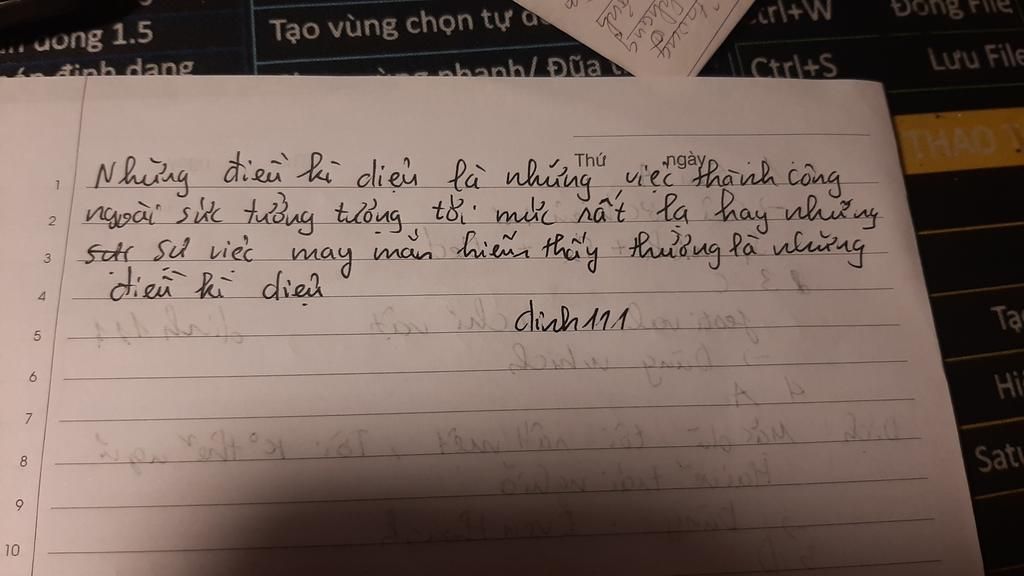 n dòng 1.5
Tạo vùng chọn tự
Ctrl+W
Đóng File
định dạng
nhanh/ Đũa
Ctrl+S
Lưu File
THAO
Thứ ngày
1 Những điều kì diệu là những việc thành công
2 ngoài sức tưởng tượng tới mức rất lạ hay những
3 sự việc may mắn hiếm thấy thường là những
4 điều kì diệu
5 dinh111
6
7
8
9
10
Tạ
Hi
Satu